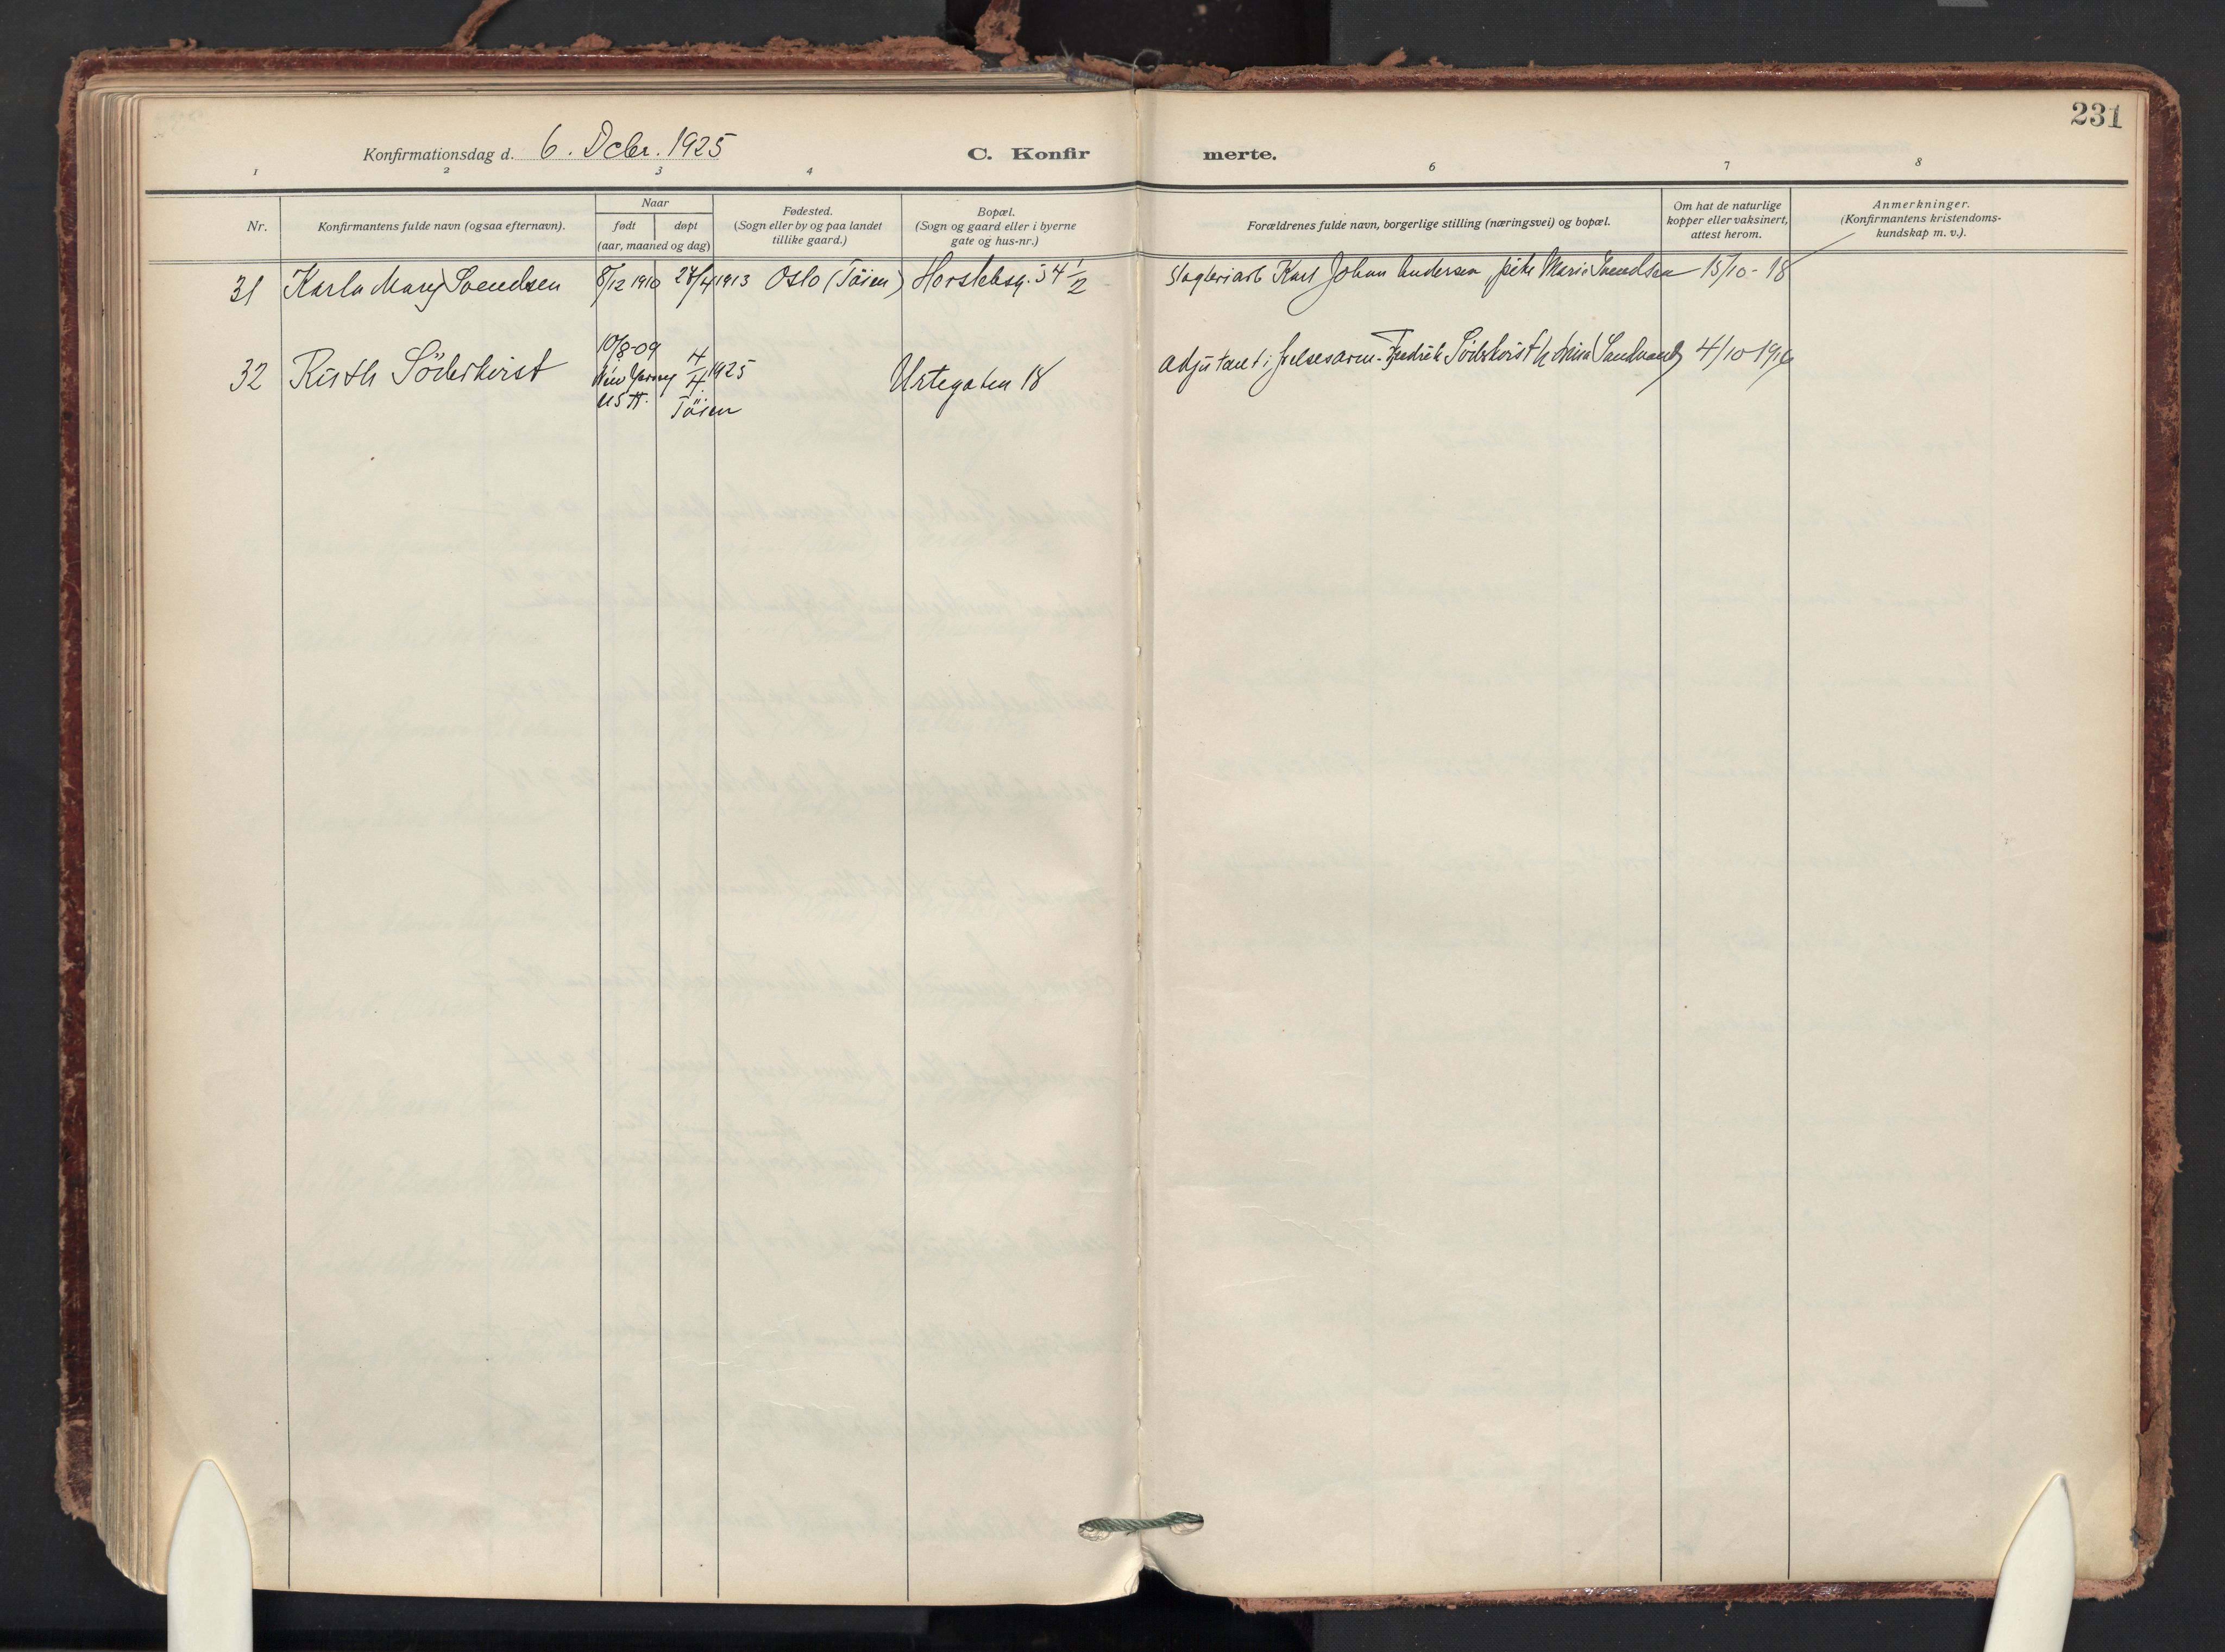 231
Konfirmationsdag d. 6. Dcbr. 1925
C. Konfir merte.
1 2 3 4 6 7 8
Nr.
Konfirmantens fulde navn (ogsaa efternavn).
Naar
født døpt
(aar, maaned og dag)
Fødested.
(Sogn eller by og paa landet
tillike gaard.)
Bopæl.
(Sogn og gaard eller i byerne
gate og hus-nr.)
Forældrenes fulde navn, borgerlige stilling (næringsvei) og bopæl.
Om hat de naturlige
kopper eller vaksinert,
attest herom.
Anmerkninger.
(Konfirmantens kristendoms-
kundskap m. v.).
31 Karla Mary Svendsen 8/12 1910 27/4 1913 Oslo (Töien) 34 1/2 Karl Johan Andersen, pike Marie Svendsen 15/10-18
32 Ruth Söderkvist 10/8-09 4/4 1925 Urtegaten 18 adjutant i frelsesarm. Fredrik Söderkvist 4/10 1916
Töien